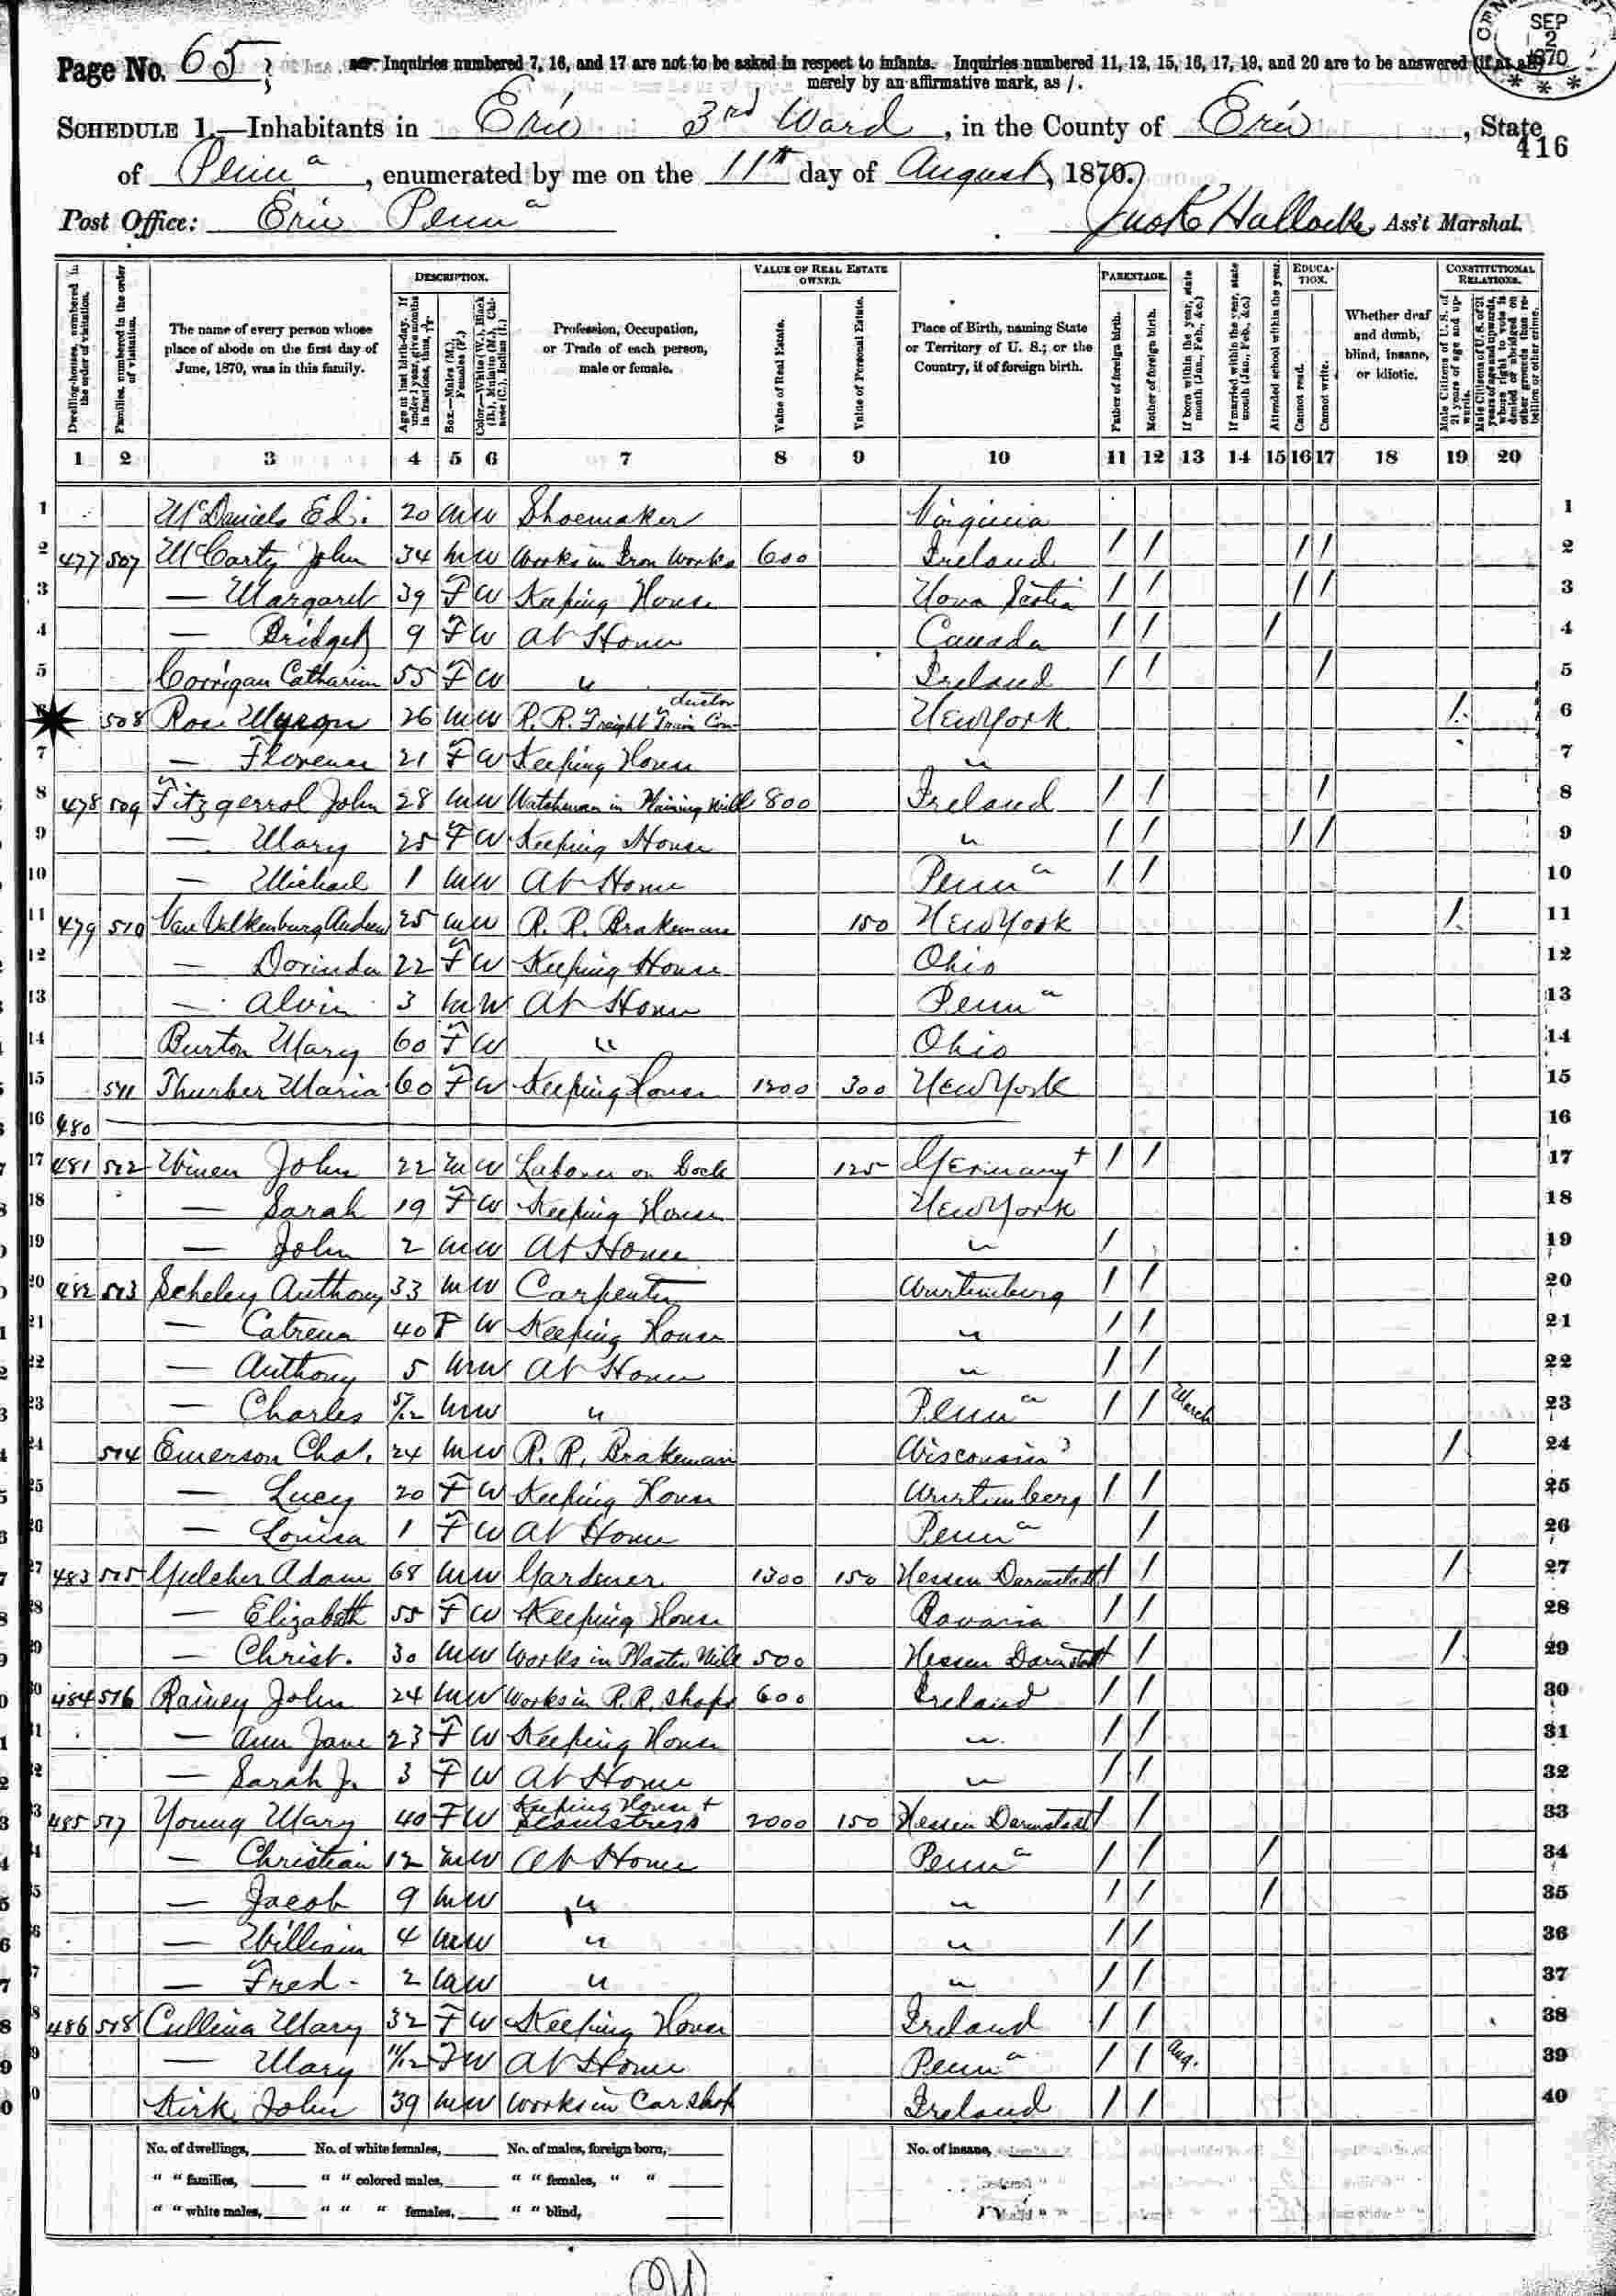 CEN
SEP
2
1870
* * *
Page No. 65
Inquiries numbered 7, 16, and 17 are not to be asked in respect to infants. Inquiries numbered 11, 12, 15, 16, 17, 19, and 20 are to be answered (if at all)
merely by an affirmative mark, as /.
SCHEDULE 1.—Inhabitants in Erie 3rd Ward, in the County of Erie, State
416
of Penna, enumerated by me on the 11th day of August, 1870.
Post Office: Erie Penna Hallock, Ass't Marshal.
DESCRIPTION. VALUE OF REAL ESTATE OWNED. PARENTAGE. EDUCATION. CONSTITUTIONAL RELATIONS.
Dwelling-houses, numbered in the order of visitation.
Families, numbered in the order of visitation.
The name of every person whose place of abode on the first day of June, 1870, was in this family.
Age at last birth-day. If under 1 year, give months in fractions, thus, 3/12.
Sex.—Males (M.), Females (F.)
Color.—White (W.), Black (B.), Mulatto (M.), Chinese (C.), Indian (I.)
Profession, Occupation, or Trade of each person, male or female.
Value of Real Estate.
Value of Personal Estate.
Place of Birth, naming State or Territory of U. S.; or the Country, if of foreign birth.
Father of foreign birth.
Mother of foreign birth.
If born within the year, state month (Jan., Feb., &c.)
If married within the year, state month (Jan., Feb., &c.)
Attended school within the year.
Cannot read.
Cannot write.
Whether deaf and dumb, blind, insane, or idiotic.
Male Citizens of U. S. of 21 years of age and upwards.
Male Citizens of U. S. of 21 years of age and upwards, whose right to vote is denied or abridged on other grounds than rebellion or other crime.
1 2 3 4 5 6 7 8 9 10 11 12 13 14 15 16 17 18 19 20
1 McDaniels Ed. 20 M W Shoemaker Virginia 1
2 477 507 McCarty John 34 M W Works in Iron Works 600 Ireland / / / / 2
3 — Margaret 39 F W Keeping House Nova Scotia / / / / 3
4 — Bridget 9 F W At Home Canada / / / 4
5 Corrigan Catharine 55 F W " Ireland / / / 5
508 Rose Myron 26 M W R. R. Freight Train Conductor New York / 6
7 — Florence 21 F W Keeping House " 7
8 478 509 Fitzgerrol John 28 M W Watchman in Plaining Mill 800 Ireland / / / 8
9 — Mary 25 F W Keeping House " / / / / 9
10 — Michael 1 M W At Home Penna / / 10
11 479 510 Van Valkenburg Andrew 25 M W R. R. Brakeman 150 New York / 11
12 — Dorinda 22 F W Keeping House Ohio 12
13 — Alvin 3 M W At Home Penna 13
14 Burton Mary 60 F W " Ohio 14
15 511 Thurber Maria 60 F W Keeping House 1200 300 New York 15
16 480 — 16
17 481 512 John 22 M W Laborer on Dock 125 Germany + / / 17
18 — Sarah 19 F W Keeping House New York 18
19 — John 2 M W At Home " / 19
20 482 513 Scheley Anthony 33 M W Carpenter Wurtemburg / / 20
21 — Catrena 40 F W Keeping House " / / 21
22 — Anthony 5 M W At Home " / / 22
23 — Charles 5/12 M W " Penna / / March 23
24 514 Emerson Chas. 24 M W R. R. Brakeman Wisconsin / 24
25 — Lucy 20 F W Keeping House Wurtemberg / / 25
26 — Louisa 1 F W At Home Penna / 26
27 483 515 Adam 68 M W Gardener 1300 150 Hessen Darmstadt / / / 27
28 — Elizabeth 55 F W Keeping House Bavaria / / 28
29 — Christ. 30 M W Works in Plaster Mill 500 Hessen Darmstadt / / / 29
30 484 516 Rainey John 24 M W Works in R. R. Shops 600 Ireland / / 30
31 — Ann Jane 23 F W Keeping House " / / 31
32 — Sarah J. 3 F W At Home " / / 32
33 485 517 Young Mary 40 F W Keeping House + Seamstress 2000 150 Hessen Darmstadt / / 33
34 — Christian 12 M W At Home Penna / / / 34
35 — Jacob 9 M W " " / / / 35
36 — William 4 M W " " / / 36
37 — Fred 2 M W " " / / 37
38 486 518 Cullina Mary 32 F W Keeping House Ireland / / 38
39 — Mary 11/12 F W At Home Penna / / Aug. 39
40 Kirk John 39 M W Works in Car Shop Ireland / / 40
No. of dwellings, No. of white females, No. of males, foreign born, No. of insane,
" " families, " " colored males, " " females, " "
" " white males, " " " females, " " blind,